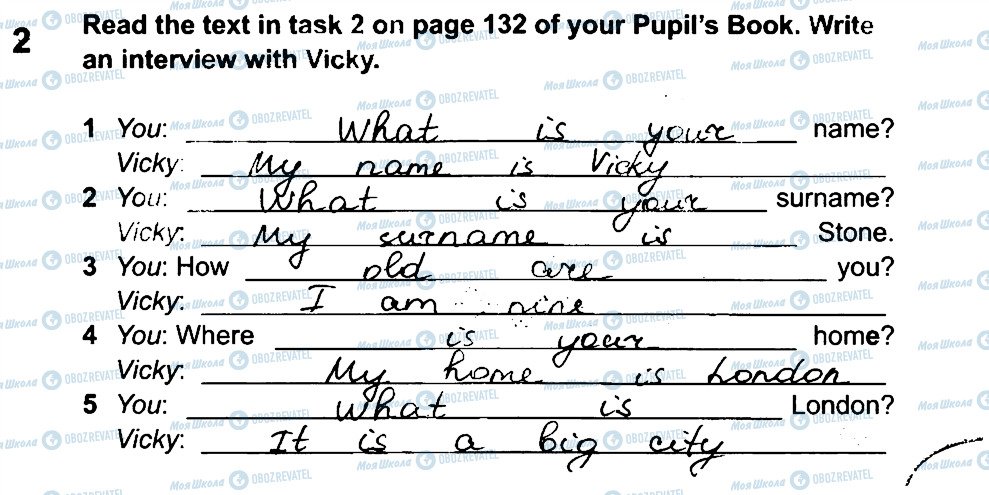 2 Read the text in task 2 on page 132 of your Pupil's Book. Write
an interview with Vicky.
1 You: What is your name?
Vicky: My name is Vicky
2 You: What is your surname?
Vicky: My surname is Stone.
3 You: How old are you?
Vicky: I am nine
4 You: Where is your home?
Vicky: My home is London
5 You: What is London?
Vicky: It is a big city